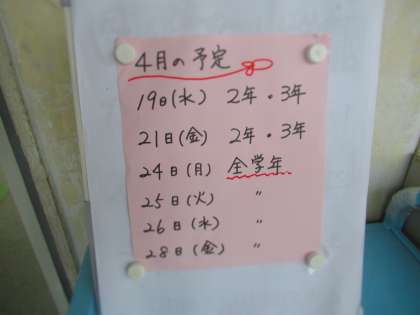 4月の予定
19日(水) 2年・3年
21日(金) 2年・3年
24日(月) 全学年
25日(火) 〃
26日(水) 〃
28日(金) 〃